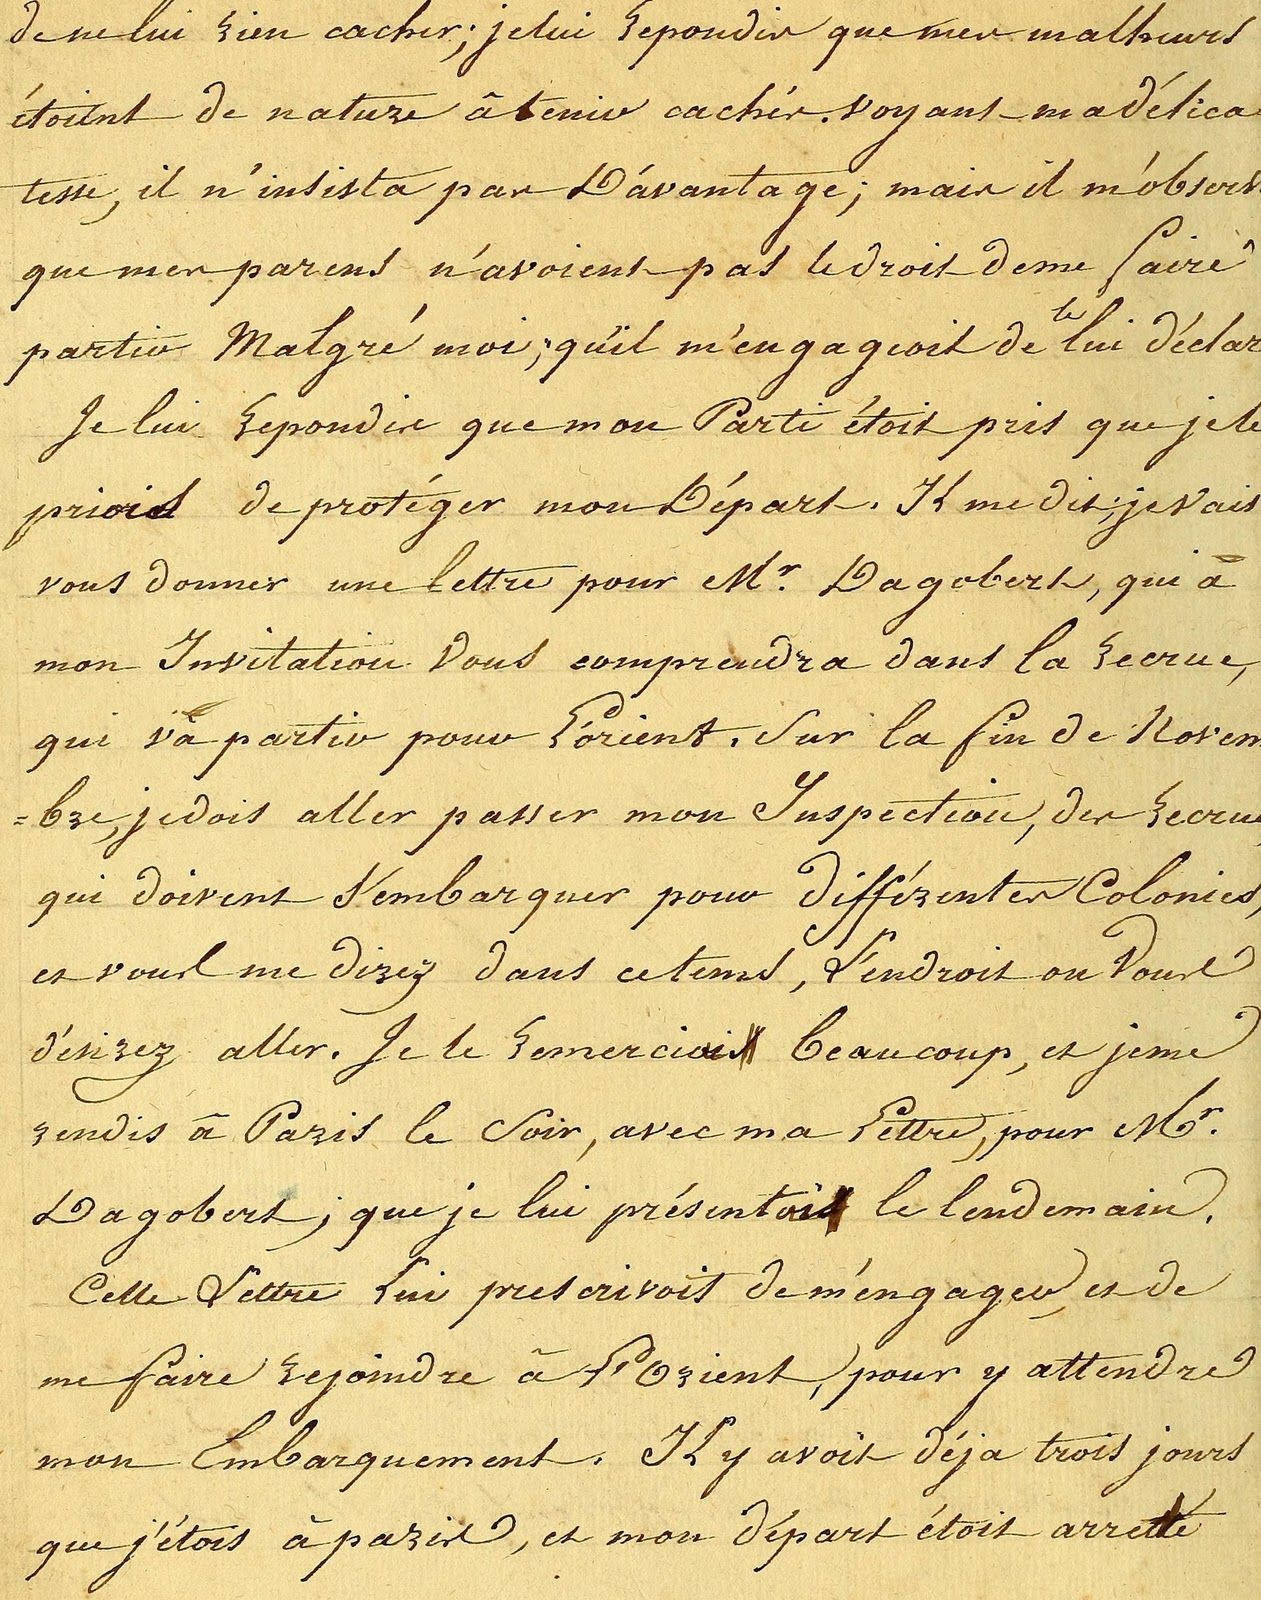 de ne lui rien cacher; je lui repondis que mes malheurs
étoient de nature à tenir cachés. voyant ma délica
tesse, il n'insista pas Dávantage; mais il m'observ
que mes parens n'avoient pas le droit de me faire
partir Malgré moi; qu'il m'engageoit de le lui déclar
Je lui repondis que mon Parti étoit pris que je le
priois de protéger mon Départ. Il me dit; je vais
vous donner une lettre pour Mr. Dagobert, qui à
mon Invitation vous comprendra dans la recrue,
qui và partir pour L'orient. Sur la fin de Novem
=bre, je dois aller passer mon Inspection, des recrue
qui doivent s'embarquer pour différentes Colonies,
et vous me direz dans ce tems, L'endroit ou vous
désirez aller. Je le remerciai beaucoup, et je me
rendis à Paris le Soir, avec ma Lettre, pour Mr.
Dagobert; que je lui présentai le lendemain.
Cette Lettre Lui prescrivoit de m'éngager, et de
me faire rejoindre à L'Orient, pour y attendre
mon Embarquement. Il y avoit déja trois jours
que j'étois à paris, et mon départ étoit arretté